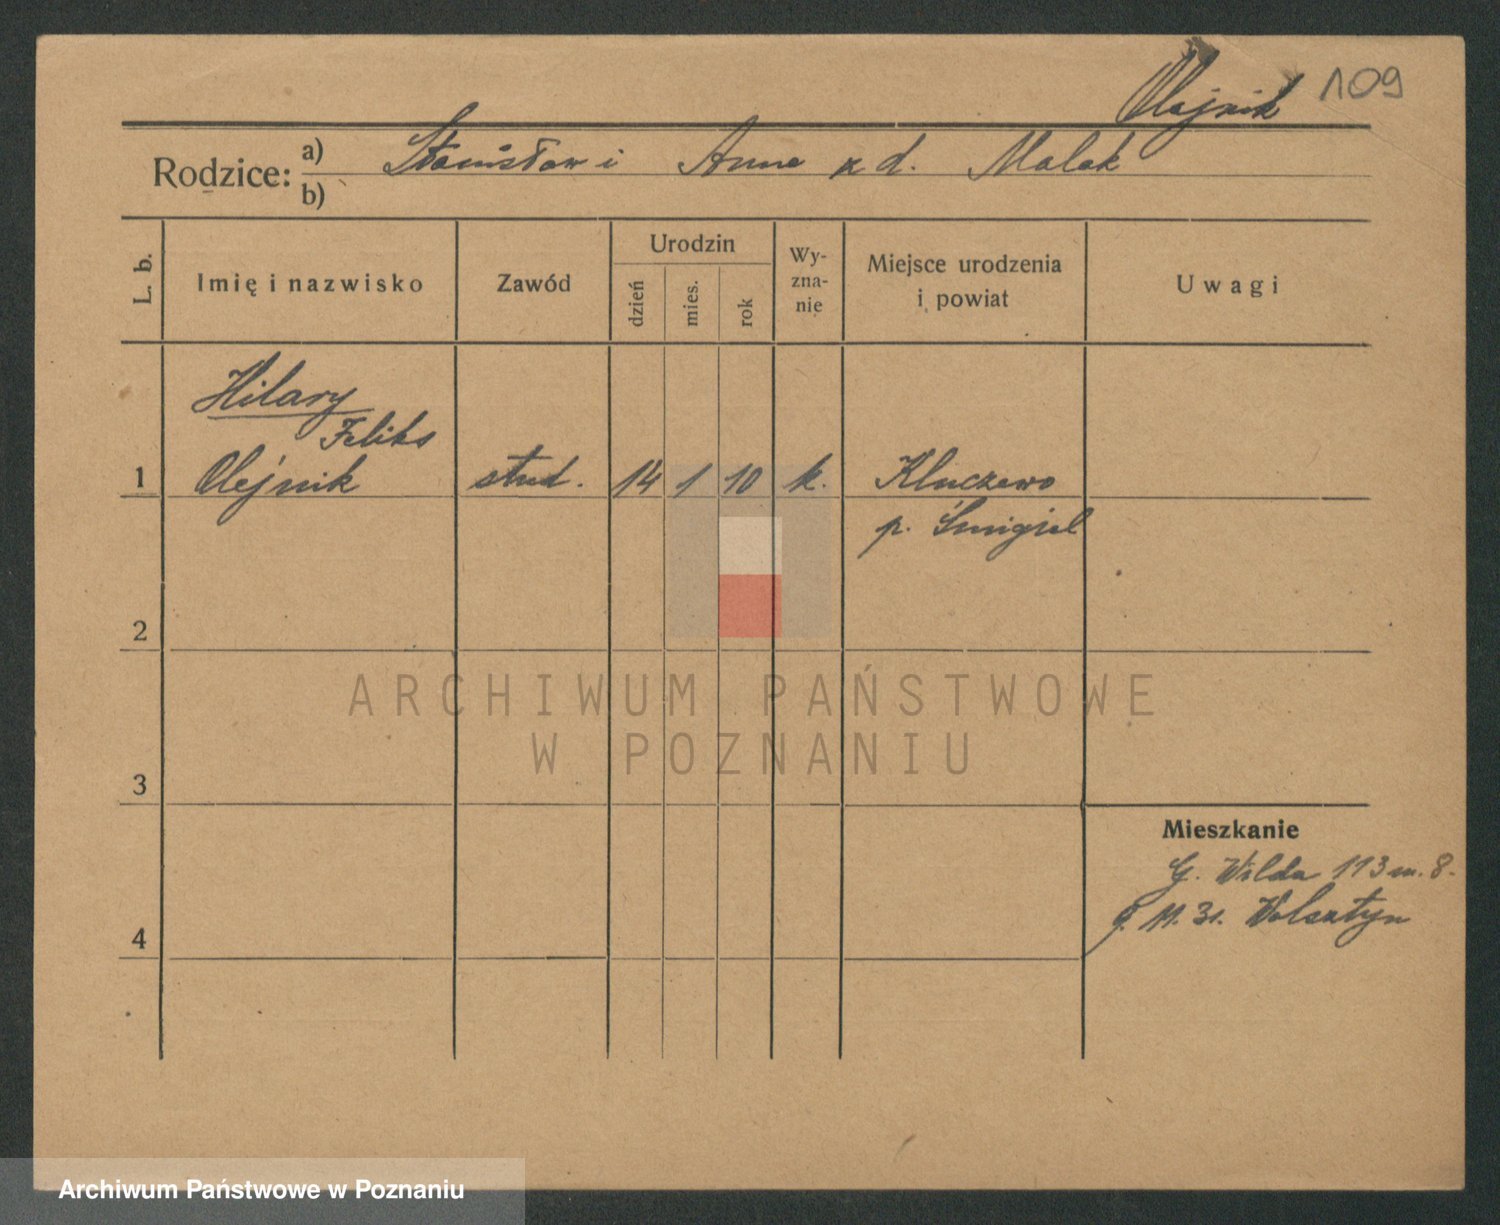 Olejnik 109
Rodzice: a) Stanisław i Anna z d. Malak
b)
L. b. Imię i nazwisko Zawód Urodzin dzień mies. rok Wyznanie Miejsce urodzenia i powiat Uwagi
Hilary
Feliks
1 Olejnik stud. 14 1 10 k. Kluczewo
p. Śmigiel
2
ARCHIWUM PAŃSTWOWE
W POZNANIU
3
Mieszkanie
G. Wilda 113 m. 8.
11. 31. Wolsztyn
4
Archiwum Państwowe w Poznaniu